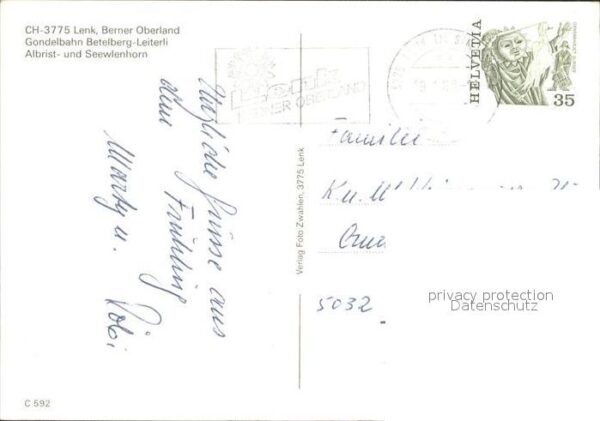 CH-3775 Lenk, Berner Oberland
Gondelbahn Betelberg-Leiterli
Albrist- und Seewlenhorn
lenk
BERNER OBERLAND
HELVETIA
35
Herzliche Grüsse aus
dem Frühling
Marty u. Robi
Verlag Foto Zwahlen, 3775 Lenk
Familie
5032
privacy protection
Datenschutz
C 592